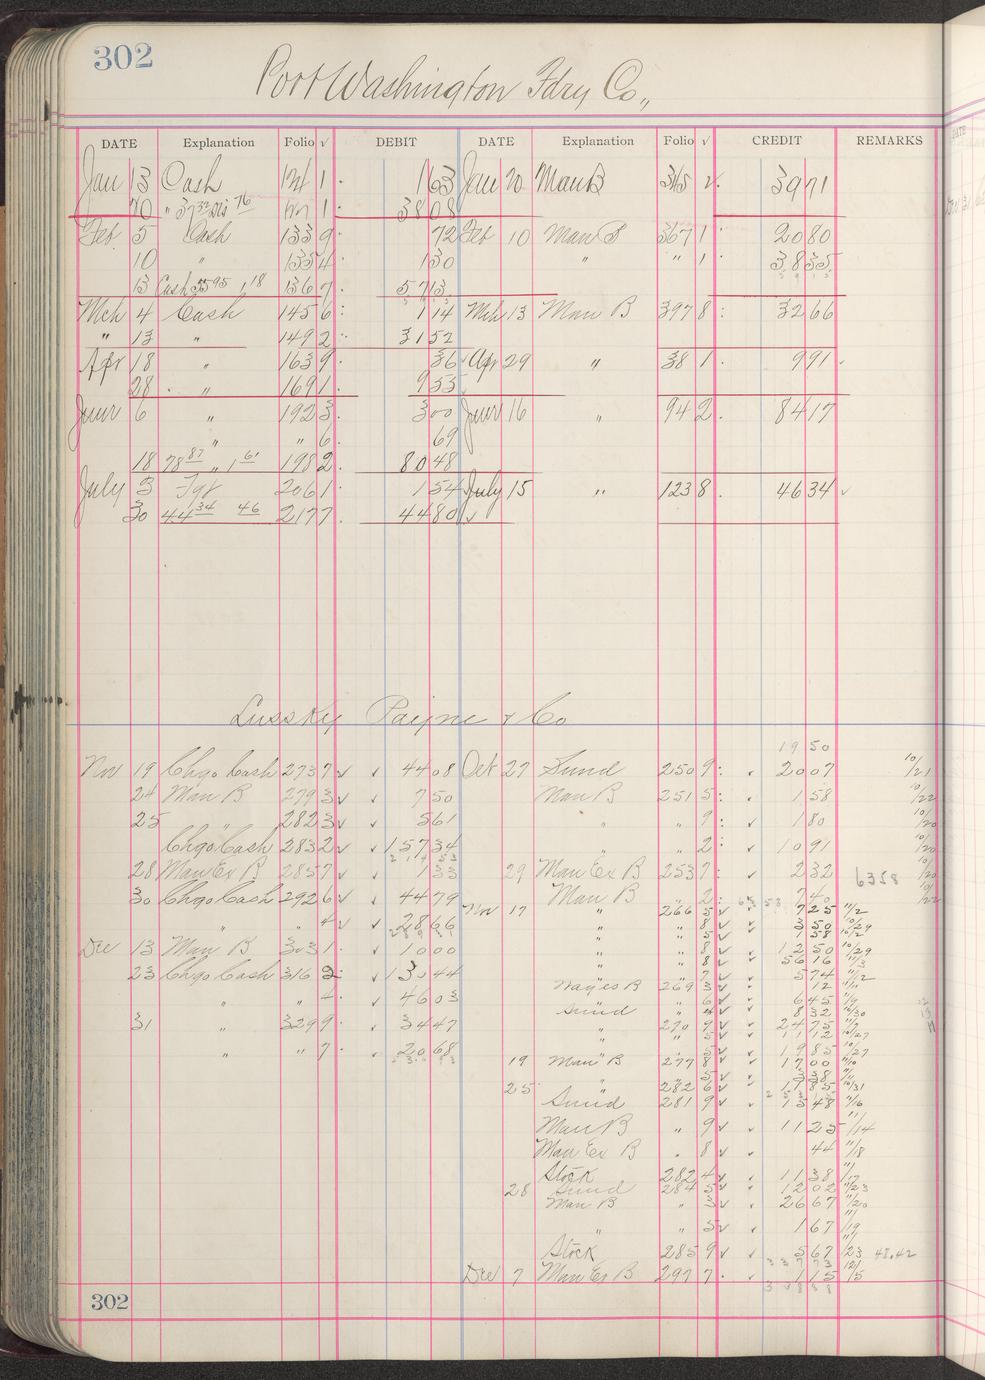 302
Port Washington Fdry Co.,
DATE Explanation Folio √ DEBIT DATE Explanation Folio √ CREDIT REMARKS
Jan 13 Cash 1 163 Jan 20 Man B 345 2 3971
20 " 37 32 Dis 76 1 3808
Feb. 5 Cash 133 9 72 Feb 10 Man B 367 1 2080
10 " 135 4 130 " " 1 3835
13 Cash 55 95 1,18 136 7 5713
Mch 4 Cash 145 6 114 Mch 13 Man B 397 8 3266
" 13 " 149 2 3152
Apr 18 " 163 9 36 Apr 29 " 38 1 991
28 " 169 1 955
June 6 " 192 3 300 June 16 " 94 2 8417
" " 6 69
18 78 87 " 1 61 198 2 8048
July 3 Fgt 206 1 154 July 15 " 123 8 4634 √
30 44 34 46 217 7 4480 √
Lussky Payne & Co
1950
Nov 19 Chgo Cash 273 7 √ √ 4408 Oct 27 Sund 250 9 √ 2007 10/21
24 Man B 279 3 √ √ 750 Man B 251 5 √ 158 10/22
25 " 282 3 √ √ 561 " " 9 √ 180 10/20
Chgo Cash 283 2 √ √ 15734 " " 2 √ 1091 10/20
28 Man Ex B 285 7 √ 133 29 Man Ex B 253 7 √ 232 10/20 6358
30 Chgo Cash 292 6 √ √ 4479 Man B " 2 740 10/22
Nov 17 " 266 5 √ √ 725 11/2
" " 4 √ √ 2866 " 8 √ √ 350 10/29
" 5 √ √ 158 10/2
Dec 13 Man B 303 1 √ 1000 " 8 √ √ 1250 10/29
" 8 √ √ 5616 11/3
23 Chgo Cash 316 2 √ 13044 " 7 √ √ 574 11/2
Wages B 269 3 √ √ 12 11/11
" " 4 √ 4603 " 6 √ √ 645 11/9
Sund " 4 √ √ 832 10/30
31 " 329 9 √ 3447 " 270 9 √ √ 2475 11/7
" 5 √ √ 1112 10/27
" " 7 √ 2068 " 5 √ √ 1985 10/27
19 Man B 277 8 √ √ 1700 11/10
" 5 √ √ 338 11/11
25 " 282 6 √ √ 1185 10/31
Sund 281 9 √ √ 1548 11/16
Man B " 9 √ √ 1125 11/14
Man Ex B " 8 √ √ 44 11/18
Stock 282 4 √ √ 1138 11/17
28 Sund 284 5 √ √ 1202 11/23
Man B " 3 √ √ 2667 11/20
" " 5 √ √ 167 11/19
Stock 285 9 √ √ 567 11/23 48.42
3373
Dec 7 Man Ex B 297 7 √ 115 12/5
3388
302